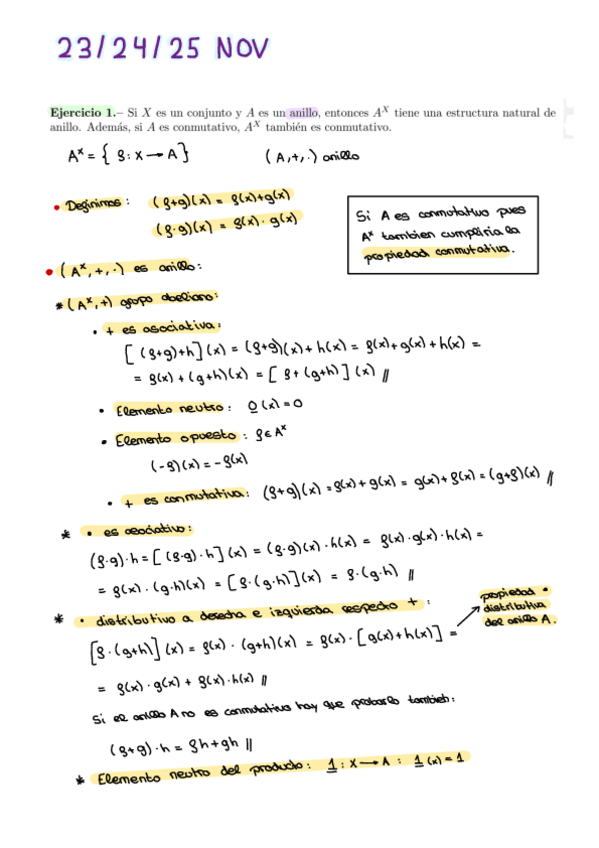 23/24/25 NOV
Ejercicio 1.– Si X es un conjunto y A es un anillo, entonces A^X tiene una estructura natural de
anillo. Además, si A es conmutativo, A^X también es conmutativo.
A^x = { f: X → A }   (A,+,·) anillo
• Definimos: (f+g)(x) = f(x)+g(x)
(f·g)(x) = f(x)·g(x)
Si A es conmutativo pues
A^x tambien cumpliria la
propiedad conmutativa.
• (A^x,+,·) es anillo:
* (A^x,+) grupo abeliano:
• + es asociativa:
[(f+g)+h](x) = (f+g)(x)+h(x) = f(x)+g(x)+h(x) =
= f(x)+(g+h)(x) = [f+(g+h)](x) //
• Elemento neutro: 0(x)=0
• Elemento opuesto: f∈A^x
(-f)(x)=-f(x)
• + es conmutativa: (f+g)(x)=f(x)+g(x) = g(x)+f(x)=(g+f)(x) //
* • es asociativo:
(f·g)·h=[(f·g)·h](x)=(f·g)(x)·h(x) = f(x)·g(x)·h(x) =
= f(x)·(g·h)(x) = [f·(g·h)](x) = f·(g·h) //
* • distributivo a derecha e izquierda respecto + :
[f·(g+h)](x) = f(x)·(g+h)(x) = f(x)·[g(x)+h(x)] =
propiedad •
distributiva
del anillo A.
= f(x)·g(x) + f(x)·h(x) //
Si el anillo A no es conmutativo hay que probarlo tambien:
(f+g)·h = fh+gh //
* Elemento neutro del producto: 1 : X → A : 1(x)=1